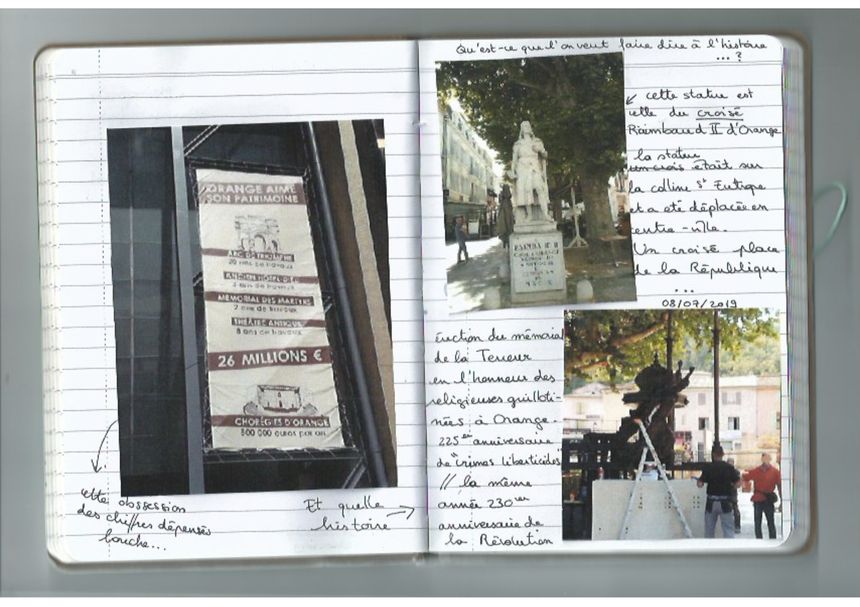 ORANGE AIME
SON PATRIMOINE
ARC DE TRIOMPHE
20 ans de travaux
ANCIEN HÔTEL D'
3 ans de travaux
MÉMORIAL DES MARTYRS
2 ans de travaux
THÉÂTRE ANTIQUE
8 ans de travaux
26 MILLIONS €
CHORÉGIES D'ORANGE
500 000 euros par an
cette obssession
des chiffres dépensés
louche...
Et quelle
histoire
Qu'est-ce que l'on veut faire dire à l'histoire
... ?
cette statue est
celle du croisé
Raimbaud II d'Orange
la statue
un crois était sur
la colline St Eutrope
et a été déplacée en
centre-ville.
Un croisé place
de la République
...
08/07/2019
RAIMBAUD II
érection du mémorial
de la Terreur
en l'honneur des
religieuses guilloti-
nées à Orange.
225è anniversaire
de "crimes liberticides"
// la même
année 230è
anniversaire de
la Révolution